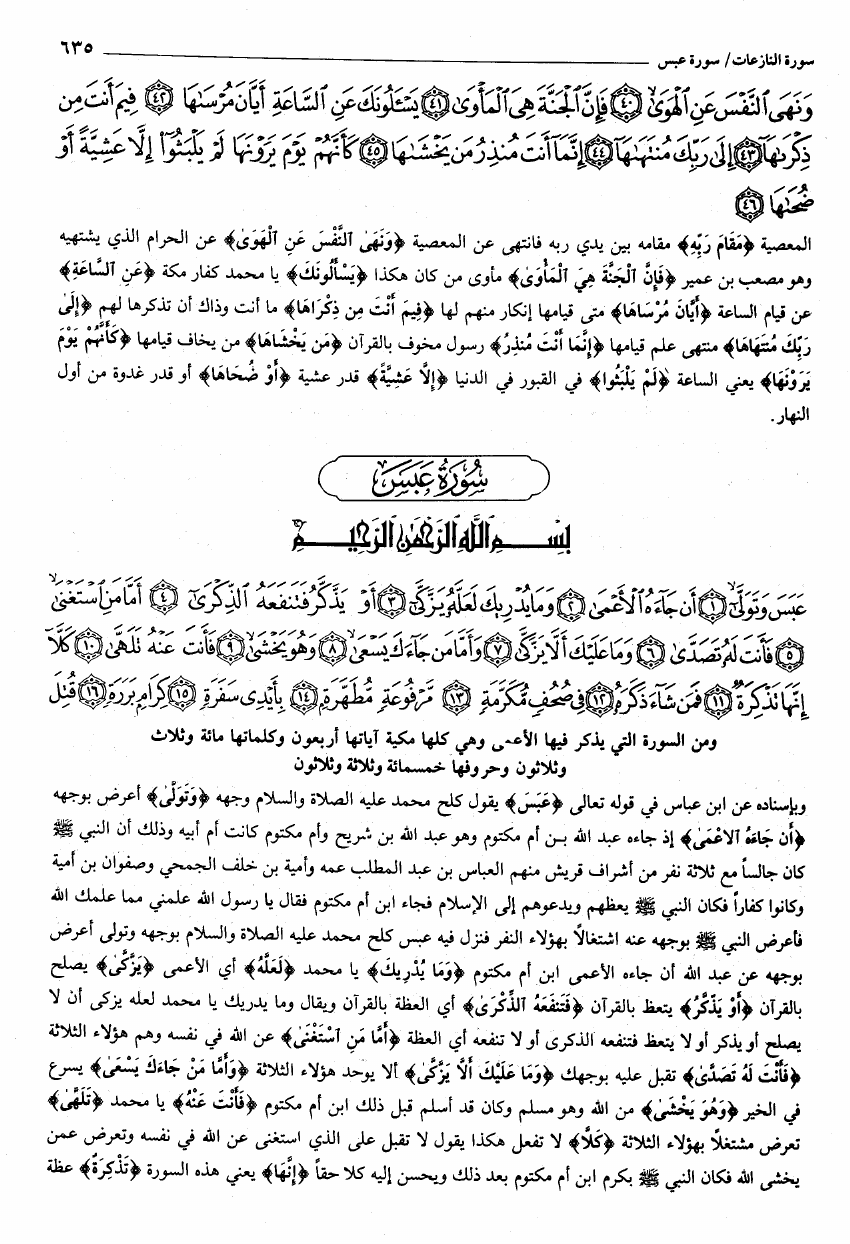 سورة النازعات/ سورة عبس ٦٣٥
وَنَهَى ٱلنَّفْسَ عَنِ ٱلْهَوَىٰ ﴿٤٠﴾ فَإِنَّ ٱلْجَنَّةَ هِىَ ٱلْمَأْوَىٰ ﴿٤١﴾ يَسْـَٔلُونَكَ عَنِ ٱلسَّاعَةِ أَيَّانَ مُرْسَىٰهَا ﴿٤٢﴾ فِيمَ أَنتَ مِن
ذِكْرَىٰهَآ ﴿٤٣﴾ إِلَىٰ رَبِّكَ مُنتَهَىٰهَآ ﴿٤٤﴾ إِنَّمَآ أَنتَ مُنذِرُ مَن يَخْشَىٰهَا ﴿٤٥﴾ كَأَنَّهُمْ يَوْمَ يَرَوْنَهَا لَمْ يَلْبَثُوٓا۟ إِلَّا عَشِيَّةً أَوْ
ضُحَىٰهَا ﴿٤٦﴾
المعصية ﴿مَقَامَ رَبِّهِ﴾ مقامه بين يدي ربه فانتهى عن المعصية ﴿وَنَهَى ٱلنَّفْسَ عَنِ ٱلْهَوَىٰ﴾ عن الحرام الذي يشتهيه
وهو مصعب بن عمير ﴿فَإِنَّ الْجَنَّةَ هِيَ ٱلْمَأْوَىٰ﴾ مأوى من كان هكذا ﴿يَسْأَلُونَكَ﴾ يا محمد كفار مكة ﴿عَنِ السَّاعَةِ﴾
عن قيام الساعة ﴿أَيَّانَ مُرْسَاهَا﴾ متى قيامها إنكار منهم لها ﴿فِيمَ أَنْتَ مِن ذِكْرَاهَا﴾ ما أنت وذاك أن تذكرها لهم ﴿إِلَىٰ
رَبِّكَ مُنتَهَاهَا﴾ منتهى علم قيامها ﴿إِنَّمَا أَنْتَ مُنذِرُ﴾ رسول مخوف بالقرآن ﴿مَن يَخْشَاهَا﴾ من يخاف قيامها ﴿كَأَنَّهُمْ يَوْمَ
يَرَوْنَهَا﴾ يعني الساعة ﴿لَمْ يَلْبَثُوا﴾ في القبور في الدنيا ﴿إِلَّا عَشِيَّةً﴾ قدر عشية ﴿أَوْ ضُحَاهَا﴾ أو قدر غدوة من أول
النهار.
سُورَةُ عَبَسَ
بِسْمِ ٱللَّهِ ٱلرَّحْمَٰنِ ٱلرَّحِيمِ
عَبَسَ وَتَوَلَّىٰٓ ﴿١﴾ أَن جَآءَهُ ٱلْأَعْمَىٰ ﴿٢﴾ وَمَا يُدْرِيكَ لَعَلَّهُۥ يَزَّكَّىٰٓ ﴿٣﴾ أَوْ يَذَّكَّرُ فَتَنفَعَهُ ٱلذِّكْرَىٰٓ ﴿٤﴾ أَمَّا مَنِ ٱسْتَغْنَىٰ
﴿٥﴾ فَأَنتَ لَهُۥ تَصَدَّىٰ ﴿٦﴾ وَمَا عَلَيْكَ أَلَّا يَزَّكَّىٰ ﴿٧﴾ وَأَمَّا مَن جَآءَكَ يَسْعَىٰ ﴿٨﴾ وَهُوَ يَخْشَىٰ ﴿٩﴾ فَأَنتَ عَنْهُ تَلَهَّىٰ ﴿١٠﴾ كَلَّآ
إِنَّهَا تَذْكِرَةٌ ﴿١١﴾ فَمَن شَآءَ ذَكَرَهُۥ ﴿١٢﴾ فِى صُحُفٍ مُّكَرَّمَةٍ ﴿١٣﴾ مَّرْفُوعَةٍ مُّطَهَّرَةٍۭ ﴿١٤﴾ بِأَيْدِى سَفَرَةٍ ﴿١٥﴾ كِرَامٍۭ بَرَرَةٍ ﴿١٦﴾ قُتِلَ
ومن السورة التي يذكر فيها الأعمى وهي كلها مكية آياتها أربعون وكلماتها مائة وثلاث
وثلاثون وحروفها خمسمائة وثلاثة وثلاثون
وبإسناده عن ابن عباس في قوله تعالى ﴿عَبَسَ﴾ يقول كلح محمد عليه الصلاة والسلام وجهه ﴿وَتَوَلَّىٰ﴾ أعرض بوجهه
﴿أَن جَاءَهُ ٱلاَعْمَىٰ﴾ إذ جاءه عبد الله بـن أم مكتوم وهو عبد الله بن شريح وأم مكتوم كانت أم أبيه وذلك أن النبي ﷺ
كان جالساً مع ثلاثة نفر من أشراف قريش منهم العباس بن عبد المطلب عمه وأمية بن خلف الجمحي وصفوان بن أمية
وكانوا كفاراً فكان النبي ﷺ يعظهم ويدعوهم إلى الإسلام فجاء ابن أم مكتوم فقال يا رسول الله علمني مما علمك الله
فأعرض النبي ﷺ بوجهه عنه اشتغالاً بهؤلاء النفر فنزل فيه عبس كلح محمد عليه الصلاة والسلام بوجهه وتولى أعرض
بوجهه عن عبد الله أن جاءه الأعمى ابن أم مكتوم ﴿وَمَا يُدْرِيكَ﴾ يا محمد ﴿لَعَلَّهُ﴾ أي الأعمى ﴿يَزَّكَّى﴾ يصلح
بالقرآن ﴿أَوْ يَذَّكَّرُ﴾ يتعظ بالقرآن ﴿فَتَنفَعَهُ الذِّكْرَىٰ﴾ أي العظة بالقرآن ويقال وما يدريك يا محمد لعله يزكى أن لا
يصلح أو يذكر أو لا يتعظ فتنفعه الذكرى أو لا تنفعه أي العظة ﴿أَمَّا مَنِ ٱسْتَغْنَىٰ﴾ عن الله في نفسه وهم هؤلاء الثلاثة
﴿فَأَنْتَ لَهُ تَصَدَّىٰ﴾ تقبل عليه بوجهك ﴿وَمَا عَلَيْكَ أَلَّا يَزَّكَّى﴾ ألا يوحد هؤلاء الثلاثة ﴿وَأَمَّا مَنْ جَاءَكَ يَسْعَىٰ﴾ يسرع
في الخير ﴿وَهُوَ يَخْشَىٰ﴾ من الله وهو مسلم وكان قد أسلم قبل ذلك ابن أم مكتوم ﴿فَأَنْتَ عَنْهُ﴾ يا محمد ﴿تَلَهَّىٰ﴾
تعرض مشتغلاً بهؤلاء الثلاثة ﴿كَلَّا﴾ لا تفعل هكذا يقول لا تقبل على الذي استغنى عن الله في نفسه وتعرض عمن
يخشى الله فكان النبي ﷺ يكرم ابن أم مكتوم بعد ذلك ويحسن إليه كلا حقاً ﴿إِنَّهَا﴾ يعني هذه السورة ﴿تَذْكِرَةٌ﴾ عظة